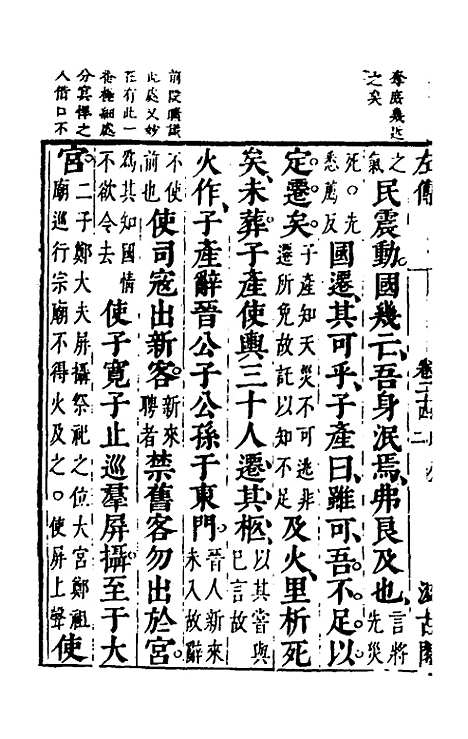 左傳 卷二十四 二 汲古閣
之氣民震動國幾亡吾身泯焉弗良及也言將先災
死。先悉薦反國遷其可乎子產曰雖可吾不足以
定遷矣子產知天災不可逃非遷所免故託以知不足及火里析死
矣未葬子產使輿三十人遷其柩以其嘗與己言故
火作子產辭晉公子公孫于東門晉人新來未入故辭
不使前也使司寇出新客新來聘者禁舊客勿出於宮
為其知國情不欲令去使子寬子上巡羣屏攝至于大
宮二子鄭大夫屏攝祭祀之位大宮鄭祖廟巡行宗廟不得火及之。使屏上聲使
之矣
前段
此處又妙
在有此一
分寘懌之